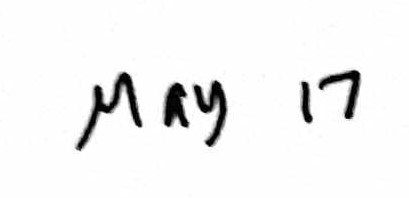 May 17